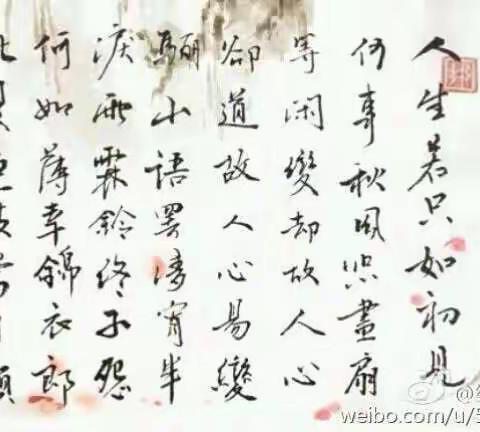 人生若只如初見
何事秋風悲畫扇
等闲變却故人心
卻道故人心易變
驪山語罷清宵半
淚雨霖鈴終不怨
何如薄幸錦衣郎
weibo.com/u/5